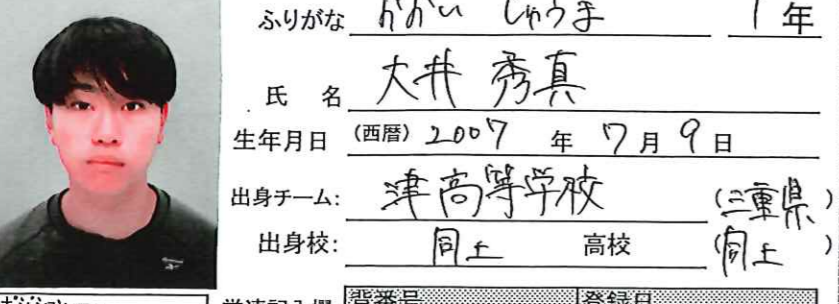 ふりがな おおい しゅうま 1年
氏名 大井 秀真
生年月日 (西暦) 2007 年 7月 9日
出身チーム: 津高等学校 (三重県)
出身校: 同上 高校 (同上)
背番号 登録日